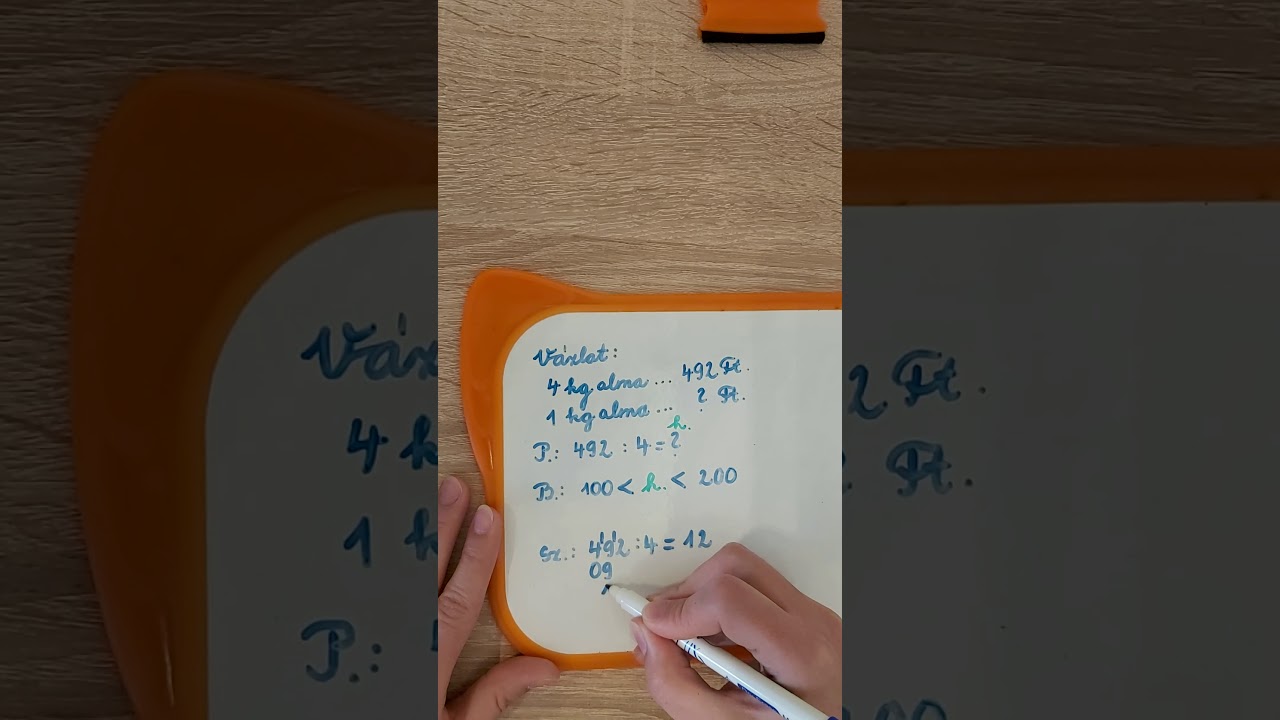 Vázlat:
4 kg alma ... 492 Ft.
1 kg alma ... ? Ft.
h.
P.: 492 : 4 = ?
B.: 100 < h. < 200
Sz.: 492 : 4 = 12
09